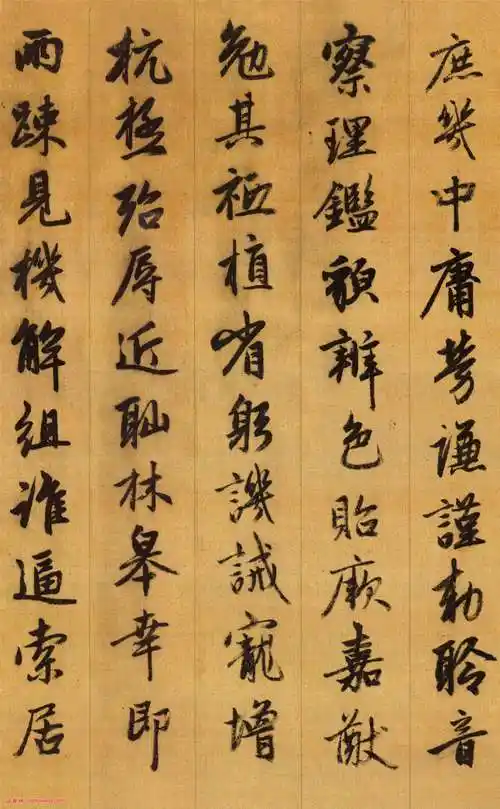 庶幾中庸勞謙謹勑聆音
察理鑑貌辨色貽厥嘉猷
勉其祗植省躬譏誡寵增
抗極殆辱近恥林皋幸即
兩疎見機解組誰逼索居